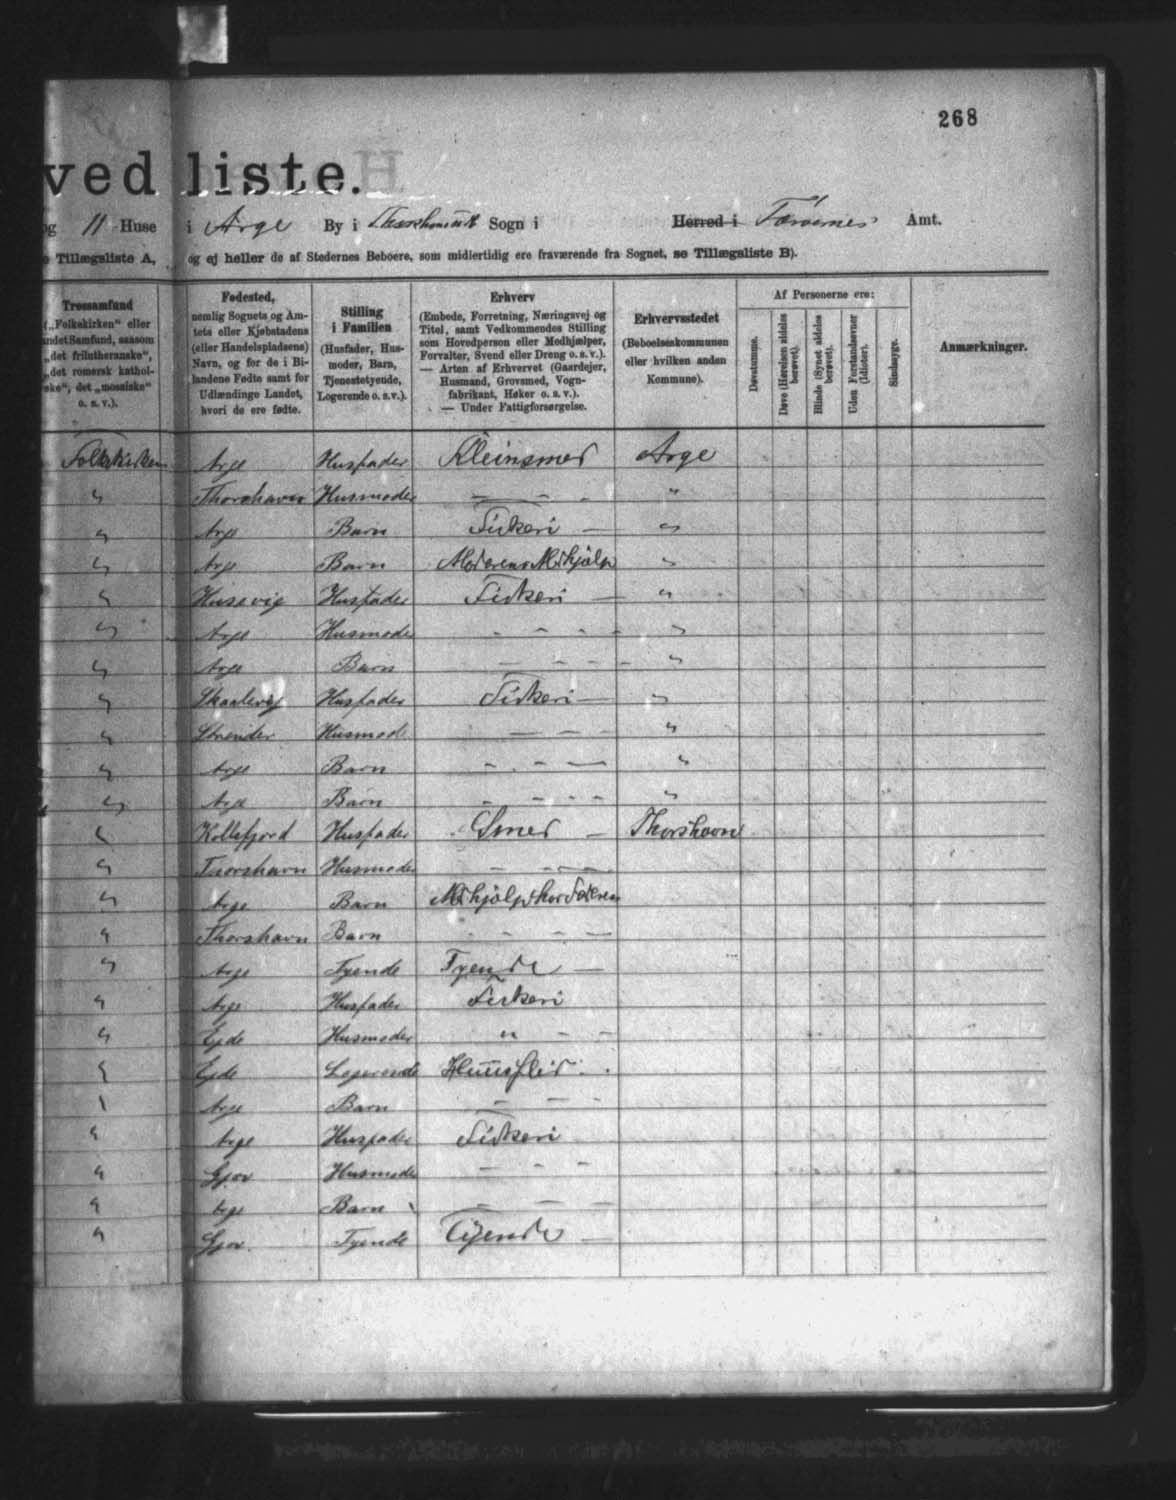 268
ved liste.
og 11 Huse i Arge By i Sogn i Herred i Færøernes Amt.
Tillægsliste A, og ej heller de af Stedernes Beboere, som midlertidig ere fraværende fra Sognet, se Tillægsliste B).
Trossamfund
(„Folkekirken“ eller
andet Samfund, saasom
„det frilutheranske“,
„det romersk kathol-
ske“, det „mosaiske“
o. s. v.).
Fødested,
nemlig Sognets og Am-
tets eller Kjøbstadens
(eller Handelspladsens)
Navn, og for de i Bi-
landene Fødte samt for
Udlændinge Landet,
hvori de ere fødte.
Stilling
i Familien
(Husfader, Hus-
moder, Barn,
Tjenestetyende,
Logerende o. s. v.).
Erhverv
(Embede, Forretning, Næringsvej og
Titel, samt Vedkommendes Stilling
som Hovedperson eller Medhjælper,
Forvalter, Svend eller Dreng o. s. v.).
— Arten af Erhvervet (Gaardejer,
Husmand, Grovsmed, Vogn-
fabrikant, Høker o. s. v.).
— Under Fattigforsørgelse.
Erhvervsstedet
(Beboelseskommunen
eller hvilken anden
Kommune).
Af Personerne ere:
Døvstumme.
Døve (Hørelsen aldeles
berøvet).
Blinde (Synet aldeles
berøvet).
Uden Forstandsevner
(Idioter).
Sindssyge.
Anmærkninger.
Folkekirken Arge Husfader Kleinsmed Arge
" Thorshavn Husmoder — - - "
" Arge Barn Fiskeri — "
" Arge Barn Moderens Medhjælp "
" Husevig Husfader Fiskeri — "
" Arge Husmoder - - - - "
" Arge Barn — - - - "
" Skaalevig Husfader Fiskeri — "
" Strender Husmod — - - "
" Arge Barn - - - — "
" Arge Barn - - - - "
" Kollefjord Husfader Smed — Thorshavn
" Thorshavn Husmoder - - —
" Arge Barn Medhjælp hos Faderen
" Thorshavn Barn - - - —
" Arge Tyende Tyende —
" Arge Husfader Fiskeri
" Ejde Husmoder " - -
" Ejde Logerende Huusflid
" Arge Barn - - -
" Arge Husfader Fiskeri
" Gjov Husmoder — - -
" Arge Barn - - —
" Gjov Tyende Tyende —